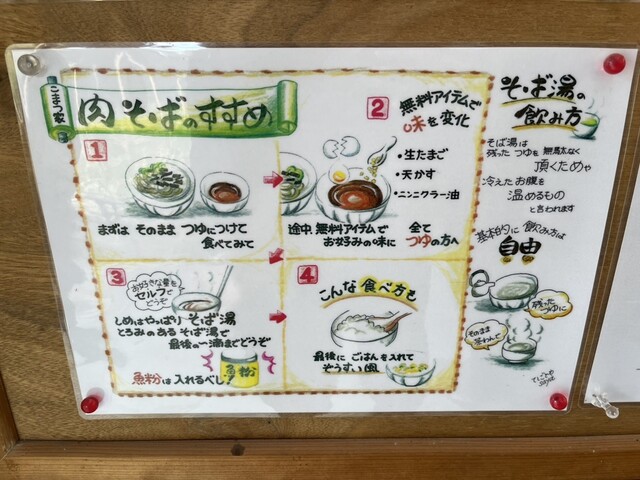 こまつ家
肉そばのすすめ
1
まずは そのまま つゆにつけて
食べてみて
2
無料アイテムで
味を変化
・生たまご
・天かす
・ニンニクラー油
途中 無料アイテムで 全て
お好みの味に つゆの方へ
3
お好きな量を
セルフで
どうぞ
しめはやっぱり そば湯
とろみのある そば湯で
最後の一滴までどうぞ
魚粉は入れるべし!
魚粉
4
こんな食べ方も
最後に ごはんを入れて
ぞうすい風
そば湯の
飲み方
そば湯は
残ったつゆを無駄なく
頂くためや
冷えたお腹を
温めるもの
と言われます
基本的に飲み方は
自由
残った
つゆに
そのまま